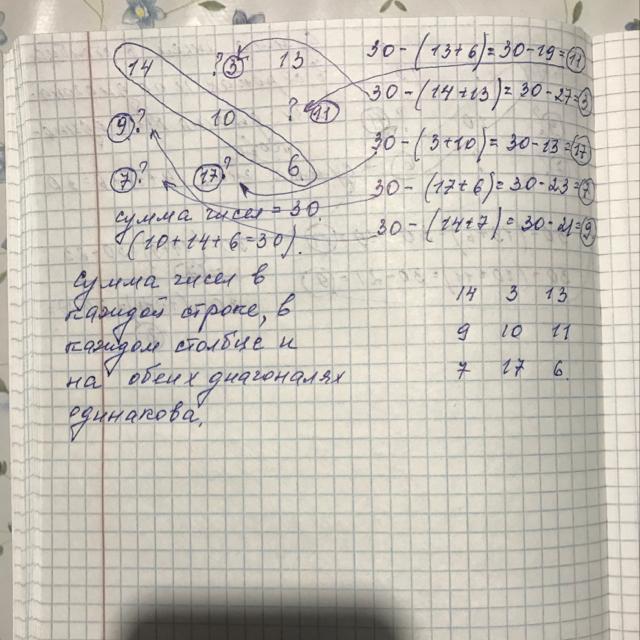 14 ? 3 13
30 - (13+6) = 30-19 = 11
30 - (14+13) = 30-27 = 3
9 ? 10 ? 11
30 - (3+10) = 30-13 = 17
7 ? 17 ? 6
30 - (17+6) = 30-23 = 7
сумма чисел = 30.
30 - (14+7) = 30-21 = 9
(10+14+6=30).
сумма чисел в
каждой строке, в
каждом столбце и
на обеих диагоналях
одинакова.
14 3 13
9 10 11
7 17 6.